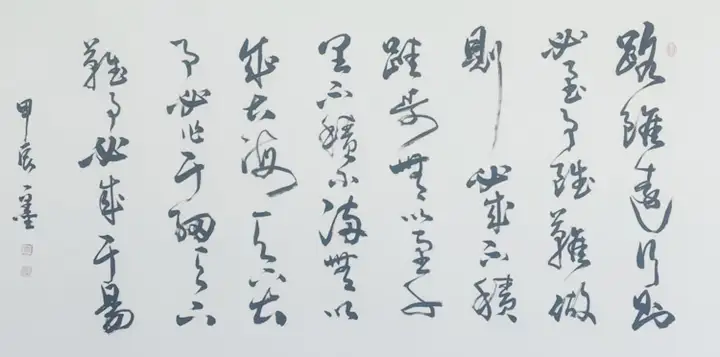 路雖遠行則
必至事雖難做
則必成不積
跬步無以至千
里不積小無以
成大海天下大
事必作于細天下
難事必成于易
甲辰一墨